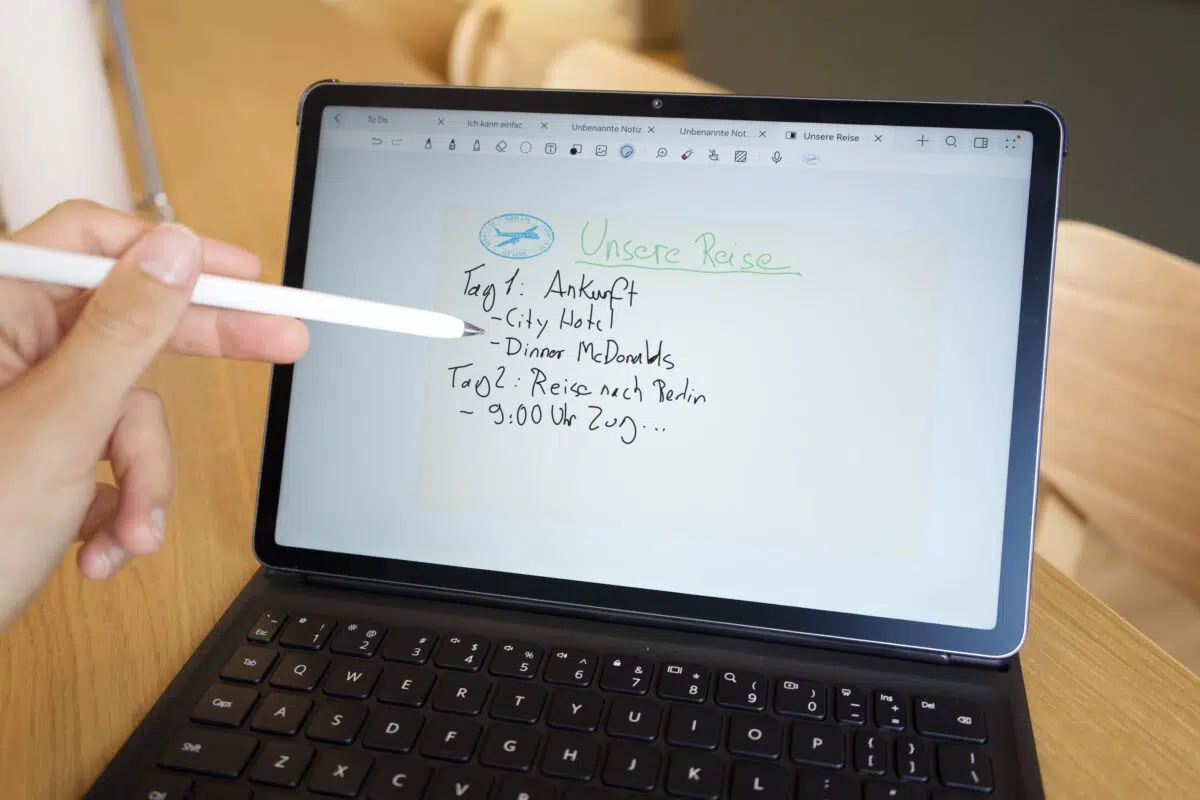 Tu Do
Ich kann einfac
Unbenannte Notiz
Unbenannte Not...
Unsere Reise
Unsere Reise
Tag 1: Ankunft
- City Hotel
- Dinner McDonalds
Tag 2: Reise nach Berlin
- 9:00 Uhr Zug...
Esc ~ ` * ! 1 @ 2 # 3 $ 4 % 5 ^ 6 & 7 * 8 ( 9 ) 0 _ - Ins + = Del
Tab Q W E R T Y U I O P { [ } ] | \
Caps A S D F G H J K L : ;
Shift Z X C V B
Ctrl